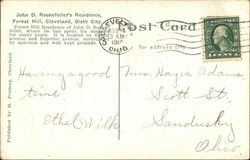 John D. Rockefeller's Residence,
Forest Hill, Cleveland, Sixth City.
Forest Hill Residence of John D. Rocke-
feller, where he has spent his summers
for many years. It is located on
avenue and Superior avenue, surrounded
by spacious and well kept grounds.
Post Card
for address
CLEVELAND
OHIO
Having a good
time
Ethel Wilk
Mrs. Hayes Adams
Scott St.
Sandusky
Ohio
Published by M. Cleveland.